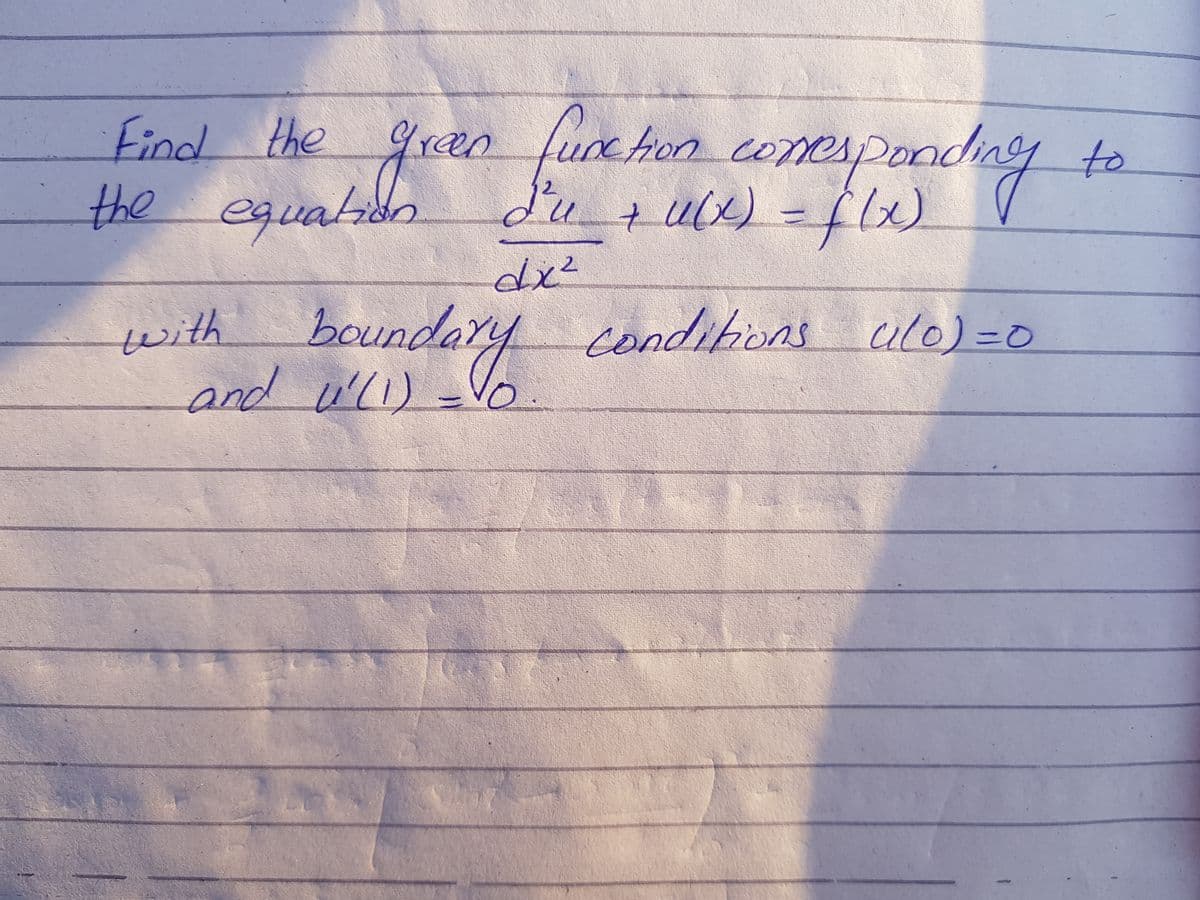 Find the green function corresponding to
the equation d²u/dx² + u(x) = f(x)
with boundary conditions u(0)=0
and u'(1) = 0.